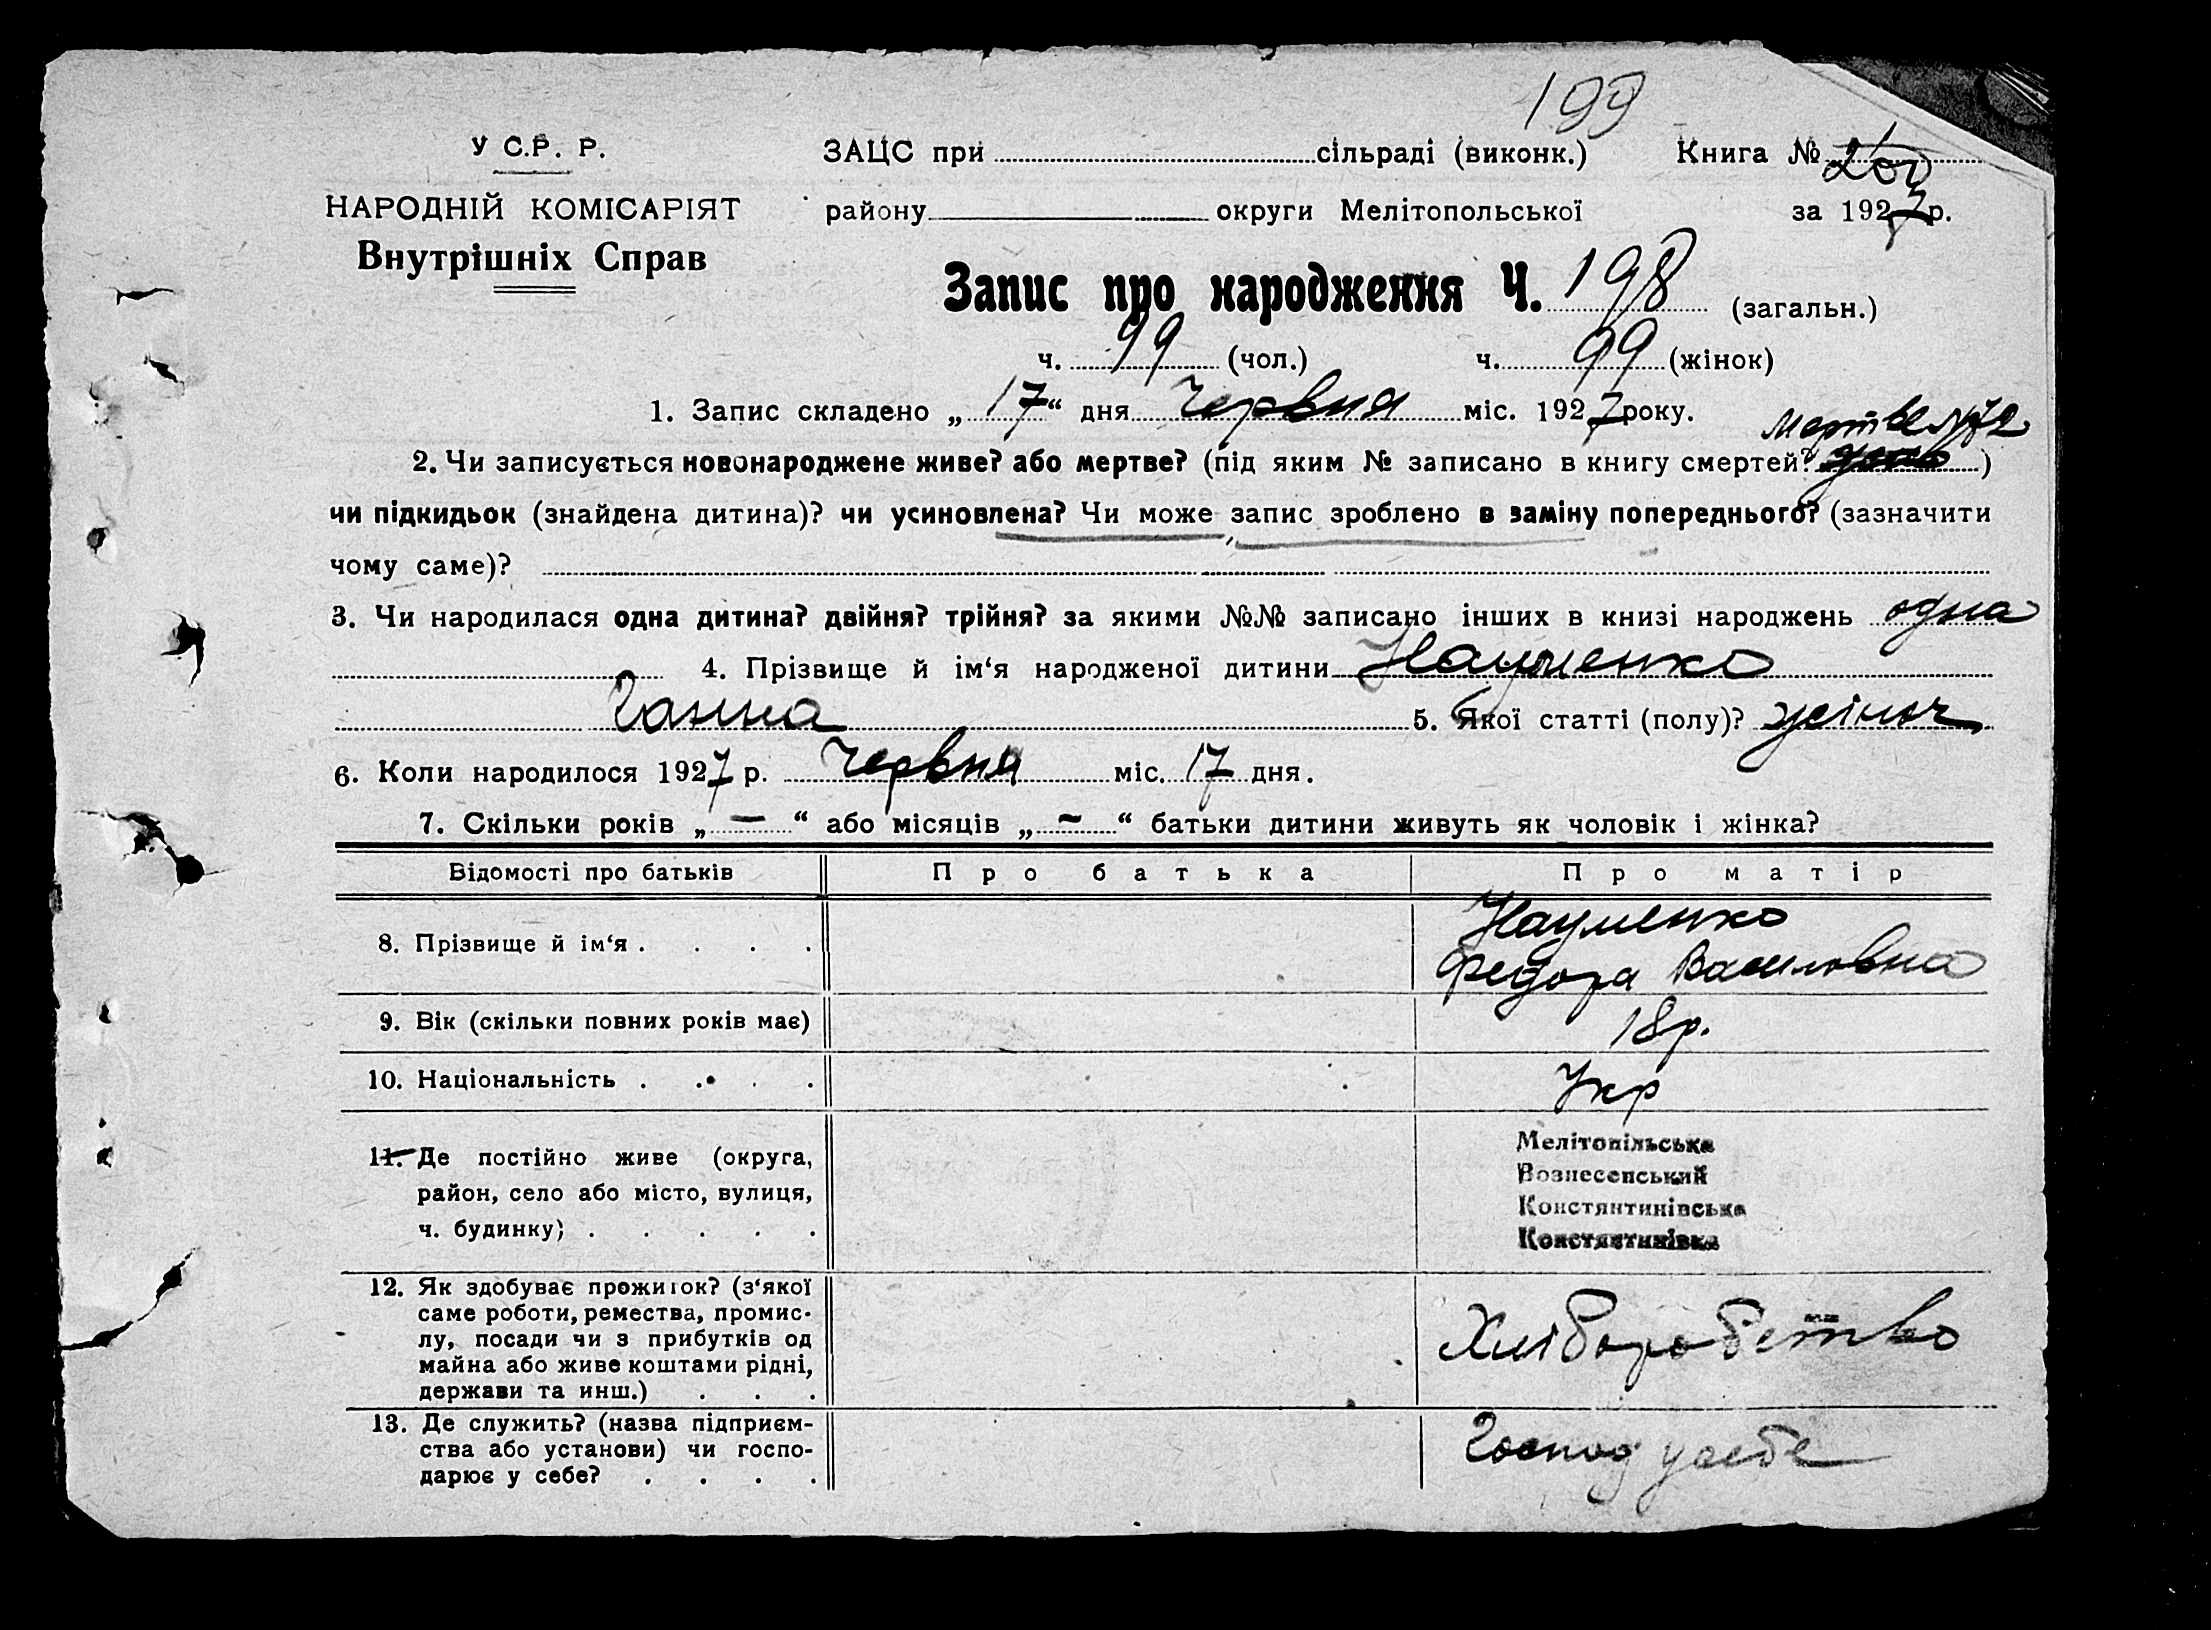 199
У С.Р. Р. ЗАЦС при сільраді (виконк.) Книга № 200
НАРОДНІЙ КОМІСАРІЯТ району округи Мелітопольської за 1927 р.
Внутрішніх Справ
Запис про народження Ч. 198 (загальн.)
ч. 99 (чол.) ч. 99 (жінок)
1. Запис складено „ 17 “ дня Червня міс. 1927 року.
мертве №72
2. Чи записується новонароджене живе? або мертве? (під яким № записано в книгу смертей? )
чи підкидьок (знайдена дитина)? чи усиновлена? Чи може запис зроблено в заміну попереднього? (зазначити
чому саме)?
3. Чи народилася одна дитина? двійня? трійня? за якими №№ записано інших в книзі народжень одна
4. Прізвище й ім‘я народженої дитини Науменко
Ганна 5. Якої статті (полу)? жіноч
6. Коли народилося 1927 р. Червня міс. 17 дня.
7. Скільки років „ — “ або місяців „ ~ “ батьки дитини живуть як чоловік і жінка?
Відомості про батьків Про батька Про матір
8. Прізвище й ім‘я . . . . Науменко
Федора Василовна
9. Вік (скільки повних років має) 18р.
10. Національність . . . . Укр
11. Де постійно живе (округа,
район, село або місто, вулиця,
ч. будинку) . . . . .
Мелітопільська
Вознесенський
Констянтинівська
Констянтинівка
12. Як здобуває прожиток? (з‘якої
саме роботи, ремества, промис-
лу, посади чи з прибутків од
майна або живе коштами рідні,
держави та инш.) . . .
Хліборобство
13. Де служить? (назва підприєм-
ства або установи) чи госпо-
дарює у себе? . . . .
Господ у себе